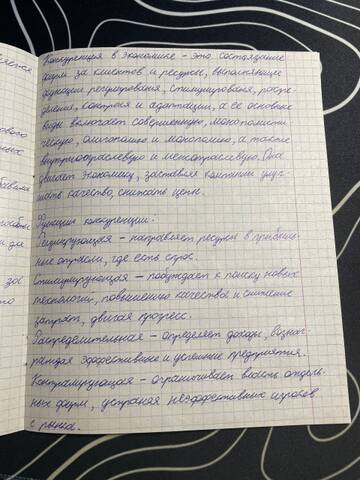 Конкуренция в экономике - это состязание
фирм за клиентов и ресурсы, выполняющее
функции регулирования, стимулирования, распре-
деления, контроля и адаптации, а её основные
виды включают совершенную, монополисти-
ческую, олигополию и монополию, а также
внутриотраслевую и межотраслевую. Она
двигает экономику, заставляя компании улуч-
шать качество, снижать цены.
Функции конкуренции.
Регулирующая - направляет ресурсы в прибыль-
ные отрасли, где есть спрос.
Стимулирующая - побуждает к поиску новых
технологии, повышению качества и снижение
затрат, двигая прогресс.
Распределительная - определяет доходы, вознаг-
раждая эффективные и успешные предприятия.
Контролирующая - ограничивает власть отдель-
ных фирм, устраняя неэффективных игроков
с рынка.